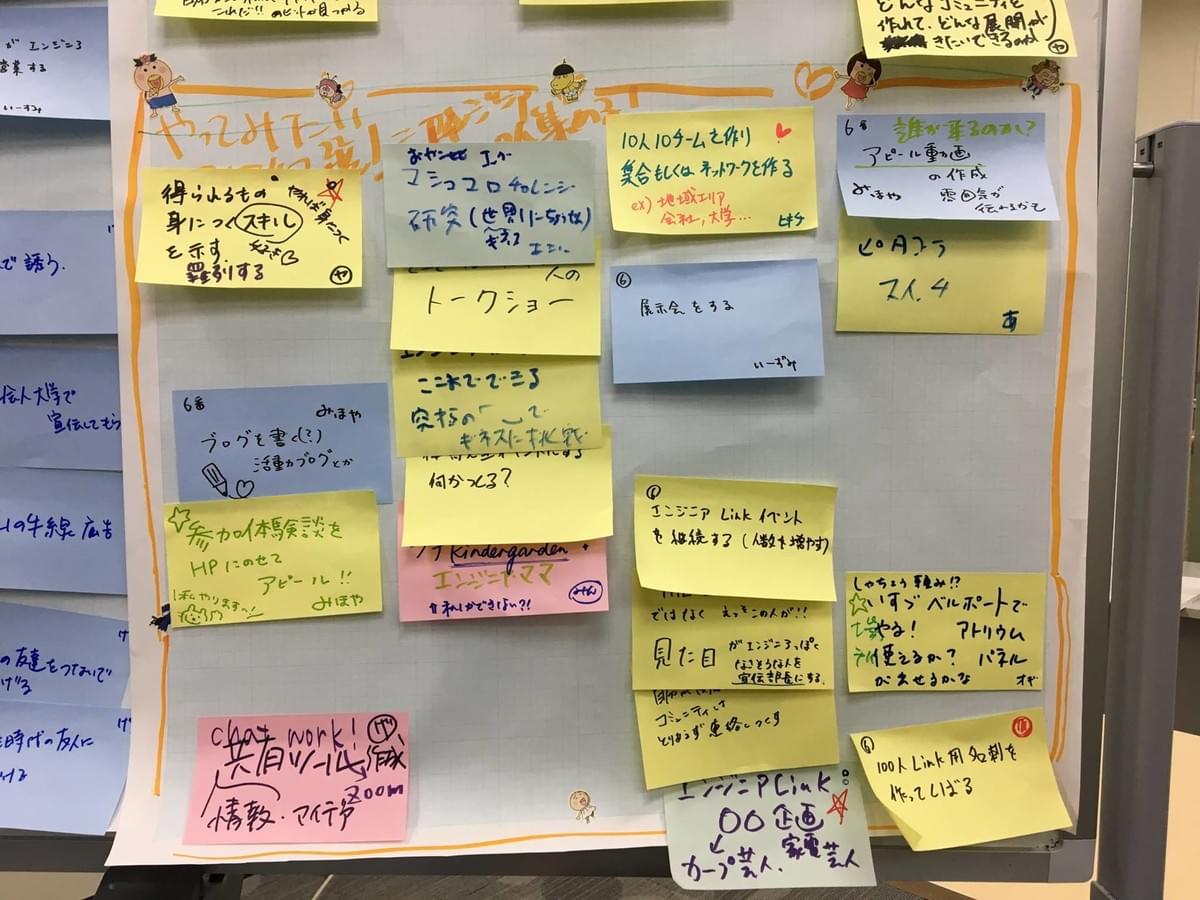 これだ!!のヒントが見つかる
どんなコミュニティを
作れて、どんな展開が
きたいできるのか
や
が エンジニア
営業する
いーずみ
で 誘う.
大学で
宣伝してもらう
の牛線広告
の友達をつないで
げる
時代の友人に
ける
やってみたい
得られるもの
身につくスキル
を示す.
羅列する
や
マシュマロチャレンジ
研究(世界一にちょうせん)
ギネス
人の
トークショー
これでできる
究極の「 」で
ギネスに挑戦
何かつくる?
Kindergarden
エンジニヤ・ママ
私しかできない?!
みん
6番
みほや
ブログを書く(?)
活動ブログとか
参加体験談を
HPにのせて
アピール!!
私やります〜!
みほや
chat work!
共有ツール作成
zoom
情報・アイデア
10人10チームを作り
集合もしくはネットワークを作る
ex) 地域エリア
会社, 大学…
ヒキチ
⑥
展示会をする
いーずみ
6番
誰が来るのか?
アピール動画
の作成
みほや
雰囲気が
伝わるかも
ピタゴラ
スイッチ
あ
⑥
エンジニア Link イベント
を継続する(人数を増やす)
ではなく えっ!この人が!!
見た目
がエンジニアっぽく
なさそうな人を
宣伝部長にする.
コミュニティは
とりあえず連絡しつくす
エンジニアLink:
〇〇企画
カープ芸人. 家電芸人
しゃちょう頼み!?
いすゞベルポートで
やる! アトリウム
使えるか? パネル
が出せるかな
オギ
⑥
100人Link用名刺を
作ってしばる